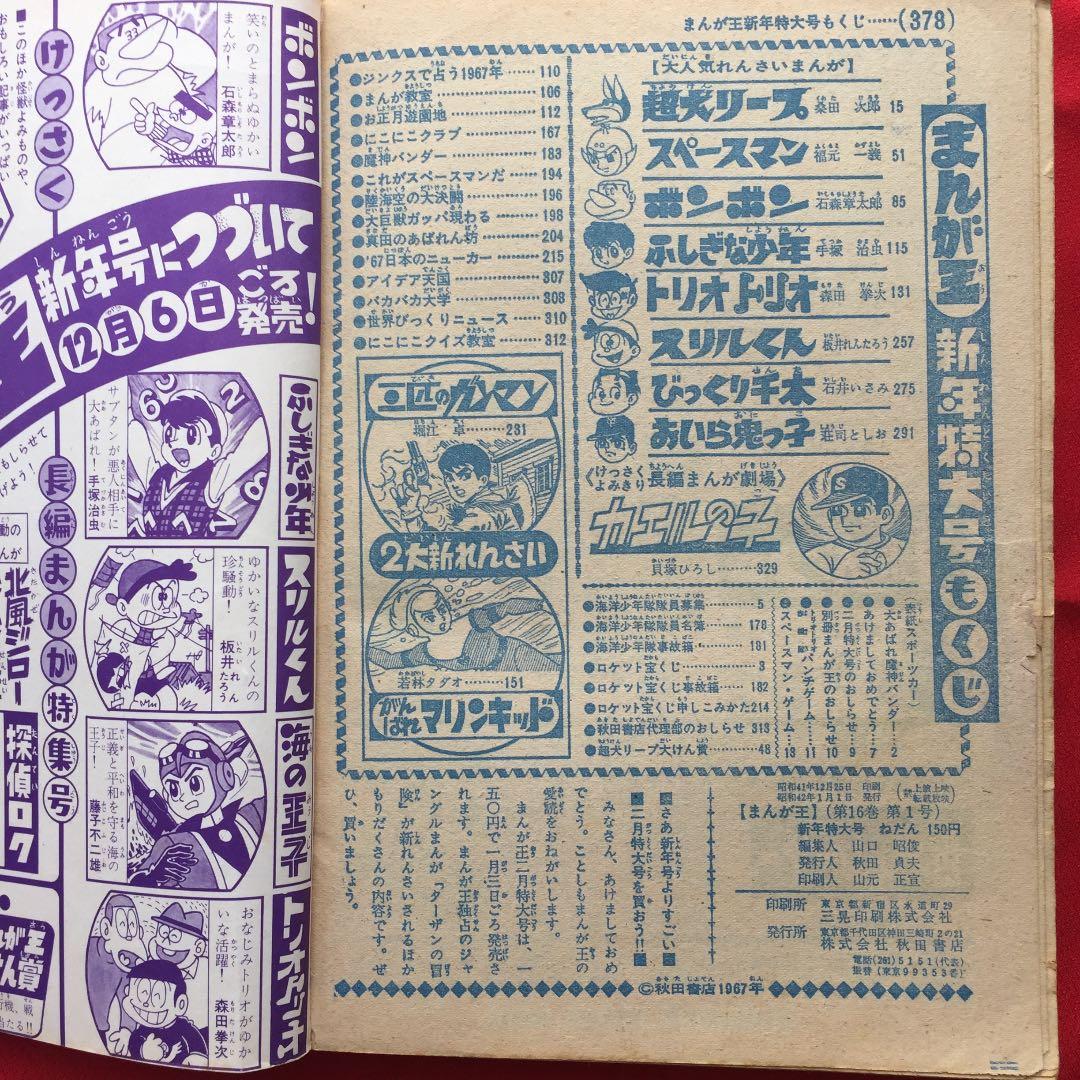 まんが王新年特大号もくじ……(378)
まんが王新年特大号もくじ
【大人気れんさいまんが】
超犬リープ 桑田 次郎 15
スペースマン 福元 一義 51
ボンボン 石森章太郎 85
ふしぎな少年 手塚 治虫 115
トリオ・ドリオ 森田 拳次 131
スリルくん 板井れんたろう 257
びっくり千太 石井いさみ 275
おいら鬼っ子 荘司としお 291
《けっさくよみきり 長編まんが劇場》
カエルの子
貝塚ひろし……329
●ジンクスで占う1967年……110
●まんが教室……106
●お正月遊園地……112
●にこにこクラブ……167
●魔神バンダー……183
●これがスペースマンだ……194
●陸海空の大決闘……196
●大巨獣ガッパ現わる……198
●真田のあばれん坊……204
●'67日本のニューカー……215
●アイデア天国……307
●バカバカ大学……308
●世界びっくりニュース……310
●にこにこクイズ教室……312
二匹のガンマン
堀江 卓……231
2大新れんさい
若林タダオ……151
がんばれマリンキッド
(表紙スポーツカー)
●大あばれ魔神バンダー！…2
●あけましておめでとう…7
●二月特大号のおしらせ…9
●別冊まんが王のおしらせ 10
●パンチゲーム…11
●スペースマン・ゲーム…13
●海洋少年隊隊員募集……5
●海洋少年隊隊員名簿……178
●海洋少年隊事故箱……181
●ロケット宝くじ……3
●ロケット宝くじ事故箱……182
●ロケット宝くじ申しこみかた214
●秋田書店代理部のおしらせ 313
●超犬リープ大けん賞……48
■さあ新年号よりすごい■
■二月特大号を買おう!!■
みなさん、あけましておめ
でとう。ことしもまんが王の
愛読をおねがいします。
まんが王二月特大号は、一
五〇円で一月三日ごろ発売さ
れます。まんが王独占のジャ
ングルまんが『ターザンの冒
険』が新れんさいされるほか
もりだくさんの内容です。ぜ
ひ、買いましょう。
昭和41年12月25日 印刷
昭和42年1月1日 発行
(禁上演上映転載放映)
【まんが王】(第16巻 第1号)
新年特大号 ねだん 150円
編集人 山口 昭俊
発行人 秋田 貞夫
印刷人 山元 正宜
印刷所 東京都新宿区水道町29
三晃印刷株式会社
発行所 東京都千代田区神田三崎町2の21
株式会社 秋田書店
電話(261)5151(代表)
振替(東京99353番)
©秋田書店1967年
ボンボン
笑いのとまらぬゆかい
まんが！
石森章太郎
■このほか怪獣よみものや、
おもしろい記事がいっぱい
けっさく
新年号につづいて
12月6日ごろ発売！
ふしぎな少年
サブタンが悪人相手に
大あばれ！ 手塚治虫
長編まんが特集号
スリルくん
ゆかいなスリルくんの
珍騒動！
板井れんたろう
北風ジロー
探偵ロク
海の王子
正義と平和を守る海の
王子！
藤子不二雄
トリオ・ドリオ
おなじみトリオがゆか
いな活躍！
森田拳次